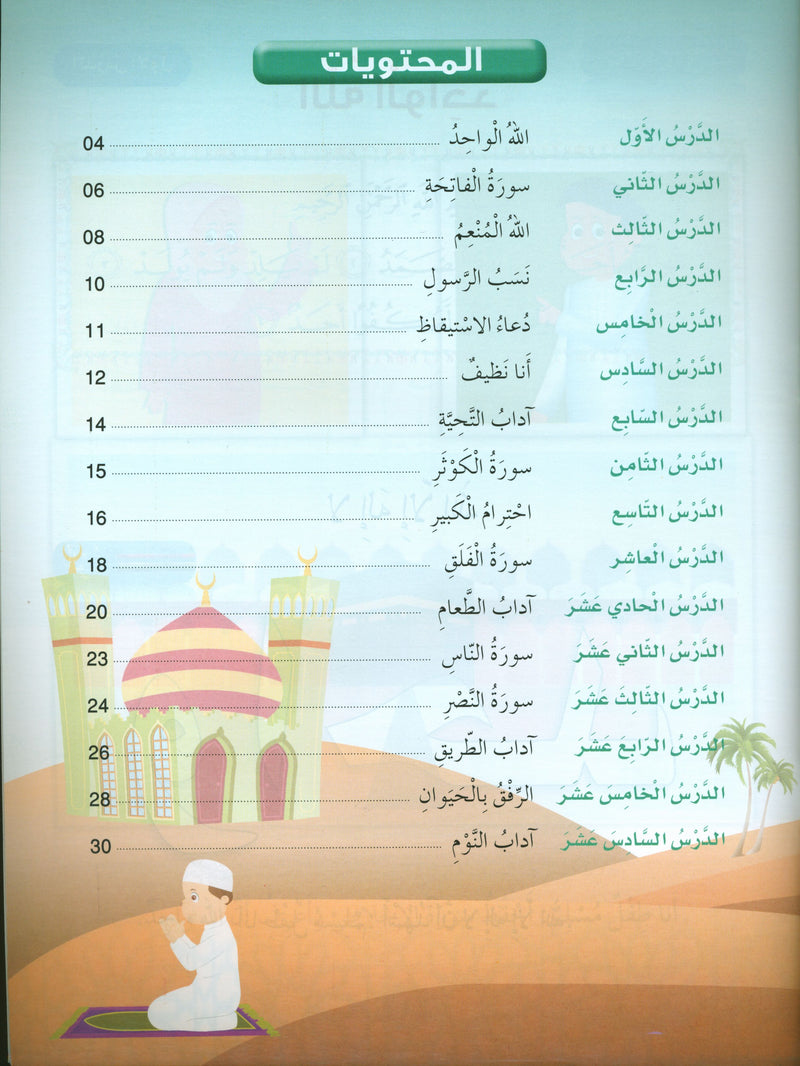 المحتويات
الدَّرْسُ الأَوّل اللهُ الْواحِدُ 04
الدَّرْسُ الثّاني سورَةُ الْفاتِحَةِ 06
الدَّرْسُ الثّالِث اللهُ الْمُنْعِمُ 08
الدَّرْسُ الرّابِع نَسَبُ الرَّسولِ 10
الدَّرْسُ الْخامِس دُعاءُ الاسْتيقاظِ 11
الدَّرْسُ السّادِس أَنا نَظيفٌ 12
الدَّرْسُ السّابِع آدابُ التَّحِيَّةِ 14
الدَّرْسُ الثّامِن سورَةُ الْكَوْثَرِ 15
الدَّرْسُ التّاسِع احْتِرامُ الْكَبيرِ 16
الدَّرْسُ الْعاشِر سورَةُ الْفَلَقِ 18
الدَّرْسُ الْحادي عَشَرَ آدابُ الطَّعامِ 20
الدَّرْسُ الثّاني عَشَرَ سورَةُ النّاسِ 23
الدَّرْسُ الثّالِثَ عَشَرَ سورَةُ النَّصْرِ 24
الدَّرْسُ الرّابِعَ عَشَرَ آدابُ الطّريقِ 26
الدَّرْسُ الْخامِسَ عَشَرَ الرِّفْقُ بِالْحَيَوانِ 28
الدَّرْسُ السّادِسَ عَشَرَ آدابُ النَّوْمِ 30